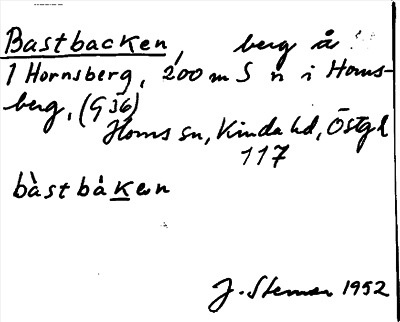 Bastbacken, berg å
1 Hornsberg, 200 m S n i Horns-
berg, (G 36)
Horns sn, Kinda hd, Östgl
117
bàstbàken
J. Stenman 1952